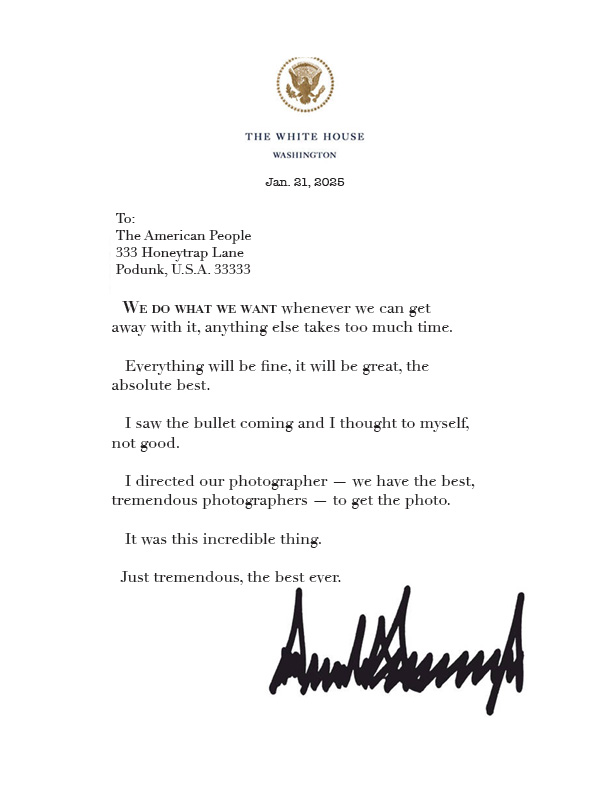 THE WHITE HOUSE
WASHINGTON
Jan. 21, 2025
To:
The American People
333 Honeytrap Lane
Podunk, U.S.A. 33333
WE DO WHAT WE WANT whenever we can get
away with it, anything else takes too much time.
Everything will be fine, it will be great, the
absolute best.
I saw the bullet coming and I thought to myself,
not good.
I directed our photographer — we have the best,
tremendous photographers — to get the photo.
It was this incredible thing.
Just tremendous, the best ever.